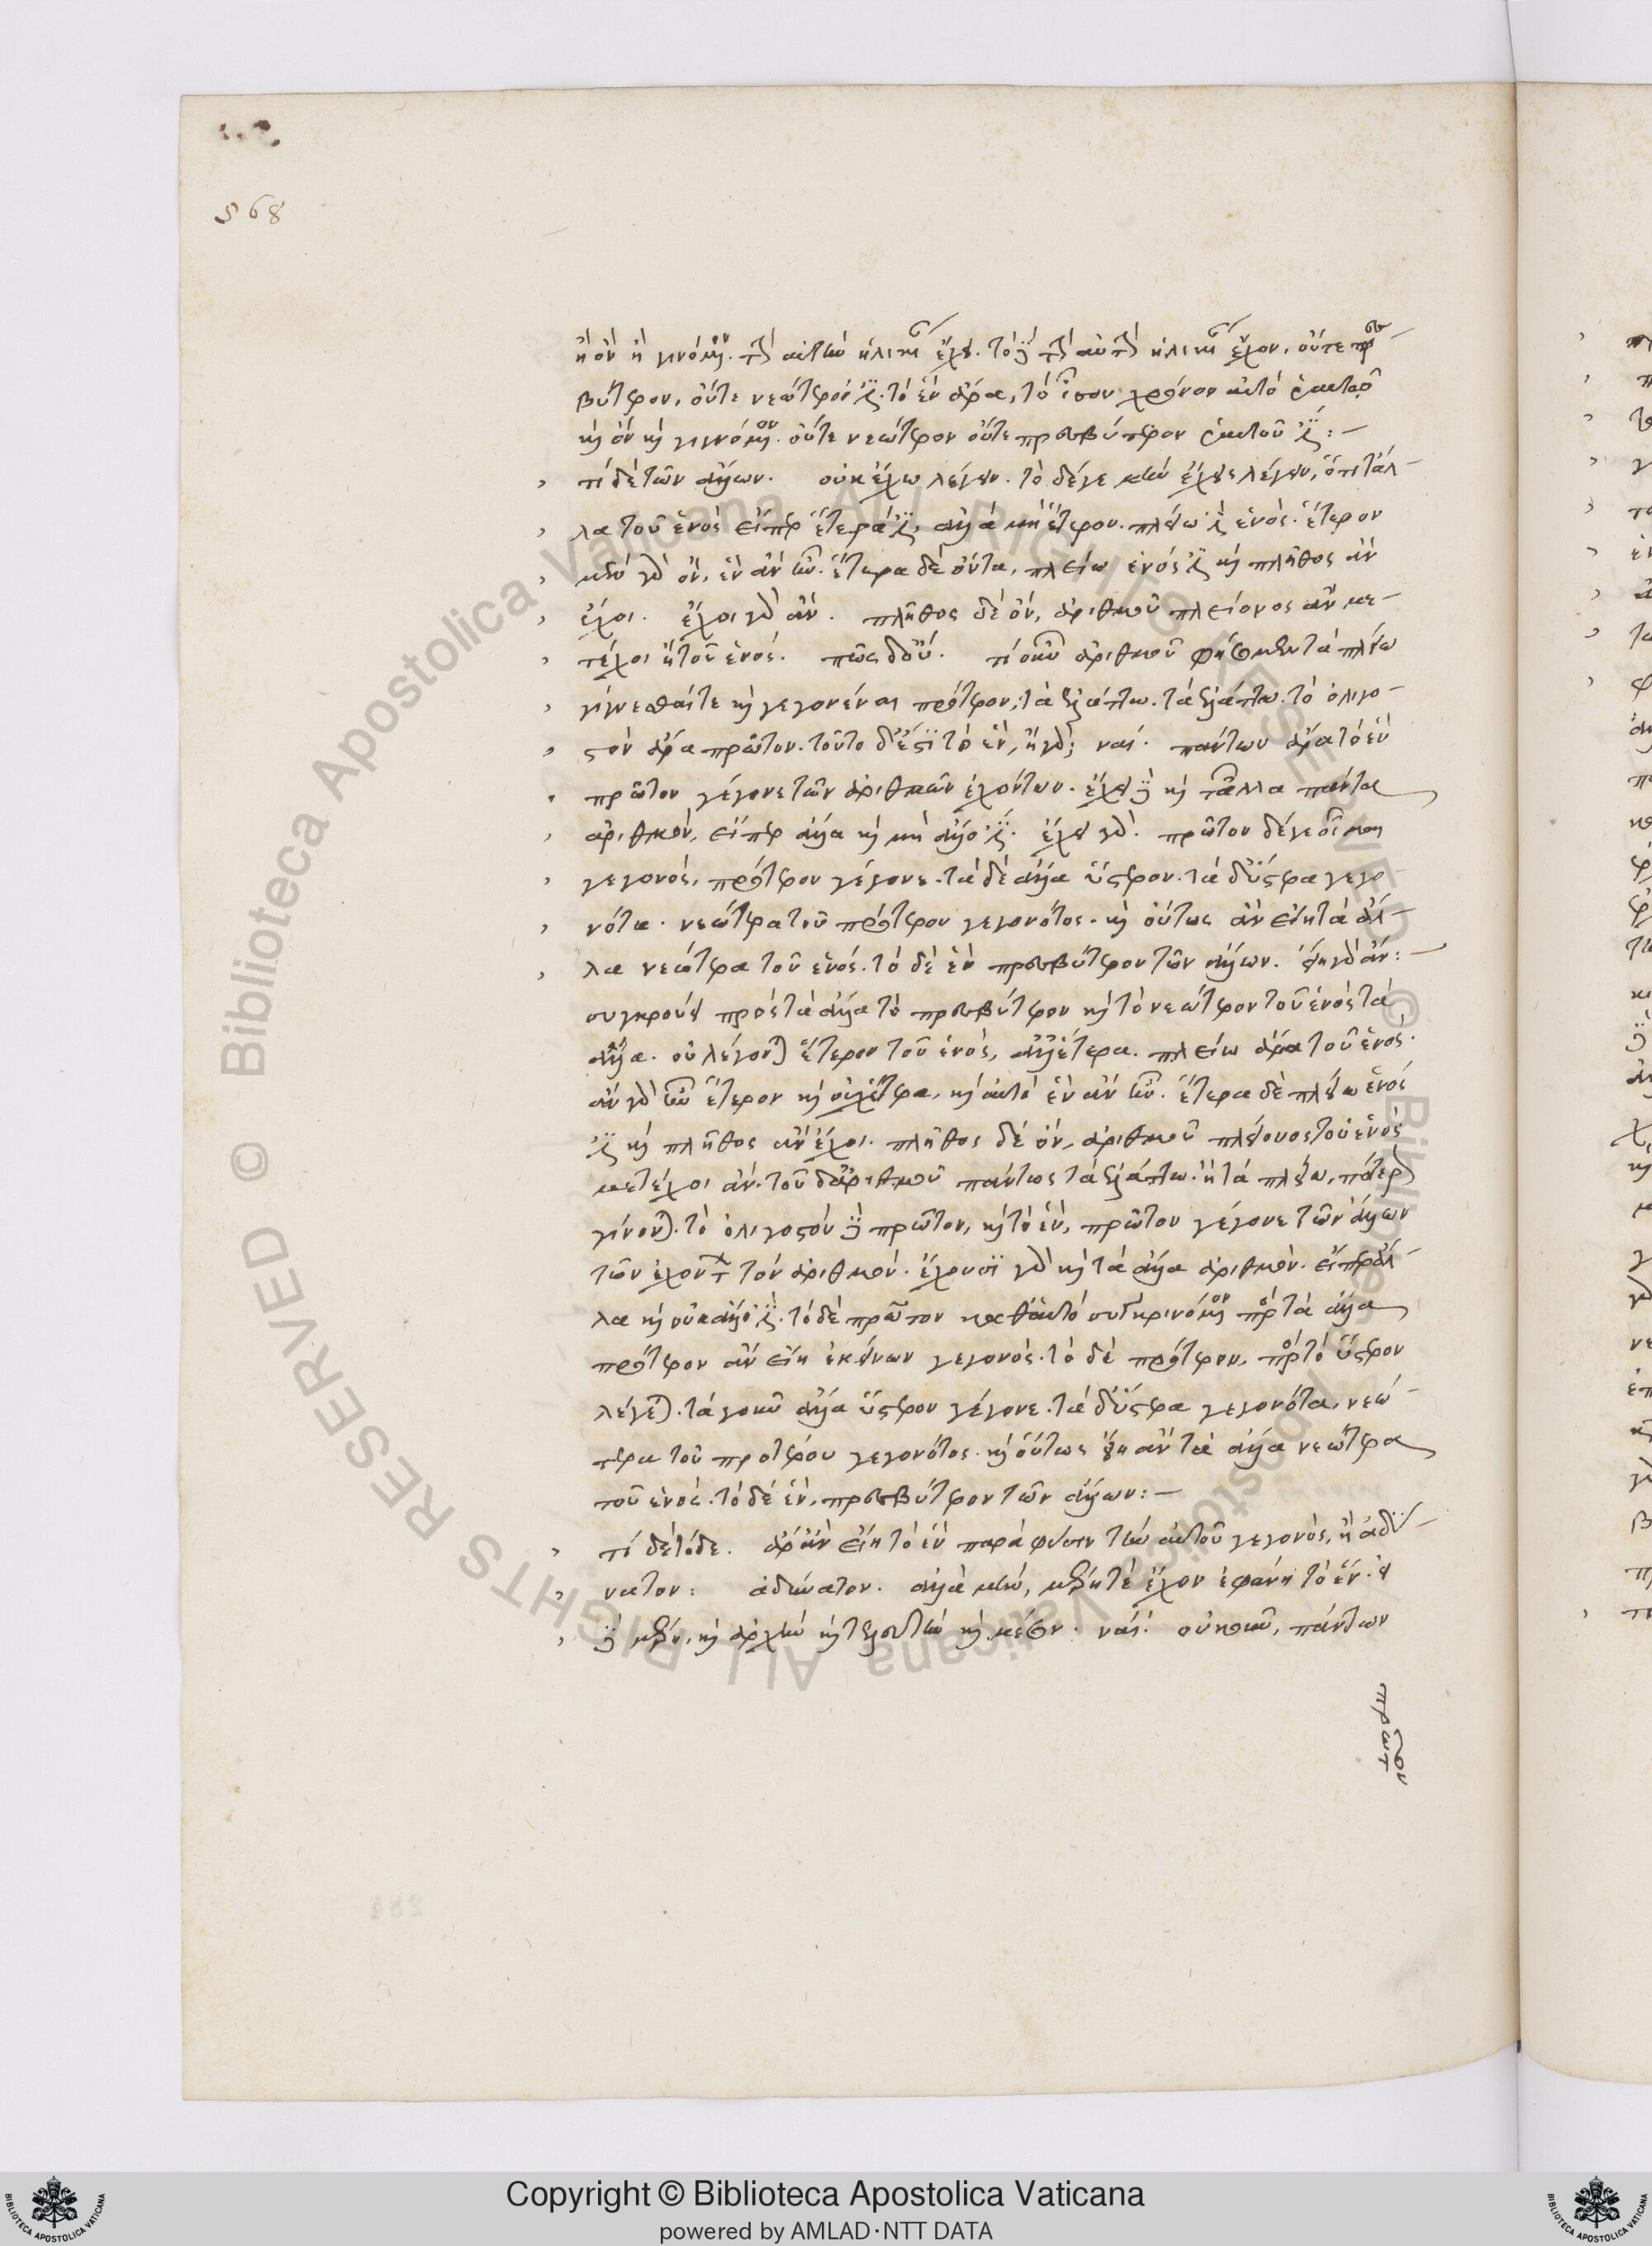 568
ἢ ὂν ἢ γινόμενον. τὴν αὐτὴν ἡλικίαν ἔχει. τὸ δὲ τὴν αὐτὴν ἡλικίαν ἔχον, οὔτε πρεσ-
βύτερον, οὔτε νεώτερόν ἐστι. τὸ ἓν ἄρα, τὸν ἴσον χρόνον αὐτὸ ἑαυτοῦ
καὶ ὂν καὶ γιγνόμενον. οὔτε νεώτερον οὔτε πρεσβύτερον ἑαυτοῦ ἐστι:-
τί δὲ τῶν ἄλλων. οὐκ ἔχω λέγειν. τὸ δέ γε μὴν ἔχεις λέγειν, ὅτι τἆλ-
λα τοῦ ἑνὸς εἴπερ ἕτερά ἐστι, ἀλλὰ μὴ ἕτερον. πλείω ἐστὶν ἑνός. ἕτερον
μὲν γὰρ ὂν, ἓν ἂν ἦν. ἕτερα δὲ ὄντα, πλείω ἑνός ἐστι καὶ πλῆθος ἂν
ἔχοι. ἔχοι γὰρ ἄν. πλῆθος δὲ ὂν, ἀριθμοῦ πλείονος ἂν με-
τέχοι ἢ τοῦ ἑνός. πῶς δ' οὔ. τί οὖν ἀριθμοῦ φήσομεν τὰ πλείω
γίγνεσθαί τε καὶ γεγονέναι πρότερον, τὰ ἐλάττω. τὰ ἐλάττω. τὸ ὀλιγο-
στὸν ἄρα πρῶτον. τοῦτο δ' ἔστι τὸ ἓν, ἦ γάρ; ναί. πάντων ἄρα τὸ ἓν
πρῶτον γέγονε τῶν ἀριθμὸν ἐχόντων. ἔχει δὲ καὶ τἆλλα πάντα
ἀριθμὸν, εἴπερ ἄλλα καὶ μὴ ἄλλο ἐστί. ἔχει γάρ. πρῶτον δέ γε οἶμαι
γεγονὸς, πρότερον γέγονε. τὰ δὲ ἄλλα ὕστερον. τὰ δ' ὕστερα γεγο-
νότα. νεώτερα τοῦ πρότερον γεγονότος. καὶ οὕτως ἂν εἴη τὰ ἄλ-
λα νεώτερα τοῦ ἑνός. τὸ δὲ ἓν πρεσβύτερον τῶν ἄλλων. εἴη γὰρ ἄν:-
συγκρούει πρὸς τὰ ἄλλα τὸ πρεσβύτερον καὶ τὸ νεώτερον τοῦ ἑνὸς τὰ
ἄλλα. οὐ λέγονται ἕτερον τοῦ ἑνὸς, ἀλλ' ἕτερα. πλείω ἄρα τοῦ ἑνός.
ἂν γὰρ ἦν ἕτερον καὶ οὐχ ἕτερα, καὶ αὐτὸ ἓν ἂν ἦν. ἕτερα δὲ πλείω ἑνός
ἐστι καὶ πλῆθος ἂν ἔχοι. πλῆθος δὲ ὂν, ἀριθμοῦ πλείονος τοῦ ἑνὸς
μετέχοι ἄν. τοῦ δ' ἀριθμοῦ πάντως τὰ ἐλάττω. ἢ τὰ πλείω, πότερον
γίνονται. τὸ ὀλιγοστὸν δὲ πρῶτον, καὶ τὸ ἓν, πρῶτον γέγονε τῶν ἄλλων
τῶν ἐχόντων τὸν ἀριθμόν. ἔχουσι γὰρ καὶ τὰ ἄλλα ἀριθμὸν. εἴπερ ἄλ-
λα καὶ οὐκ ἄλλο ἐστί. τὸ δὲ πρῶτον καθ' αὑτὸ συγκρινόμενον πρὸς τὰ ἄλλα
πρότερον ἂν εἴη ἐκείνων γεγονός. τὸ δὲ πρότερον, πρὸς τὸ ὕστερον
λέγεται. τὰ γοῦν ἄλλα ὕστερον γέγονε. τὰ δ' ὕστερα γεγονότα, νεώ-
τερα τοῦ προτέρου γεγονότος. καὶ οὕτως εἴη ἂν τὰ ἄλλα νεώτερα
τοῦ ἑνός. τὸ δὲ ἓν, πρεσβύτερον τῶν ἄλλων:-
τί δὲ τόδε. ἆρ' ἂν εἴη τὸ ἓν παρὰ φύσιν τὴν αὑτοῦ γεγονὸς, ἢ ἀδύ-
νατον: ἀδύνατον. ἀλλὰ μὴν, μέρη τὲ ἔχον ἐφάνη τὸ ἕν. εἰ
δὲ μέρη, καὶ ἀρχὴν καὶ τελευτὴν καὶ μέσον. ναί. οὐκοῦν, πάντων
πρῶτον